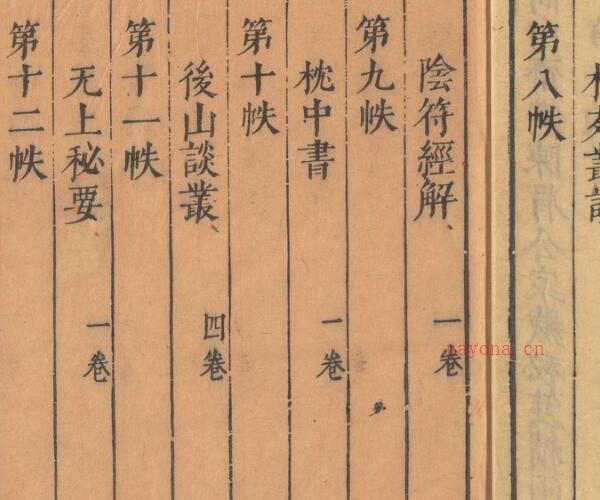 第八帙
陰符經解、 一卷
第九帙
枕中書 一卷
第十帙
後山談叢、 四卷
第十一帙
无上秘要、 一卷
第十二帙
nayona cn